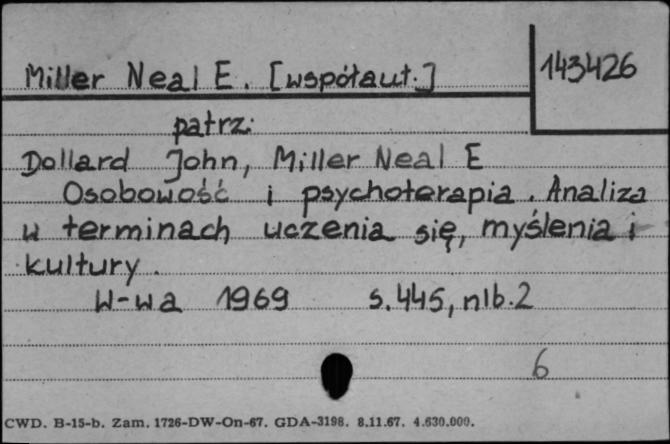 Miller Neal E. [współaut.]
143426
patrz:
Dollard John, Miller Neal E
Osobowość i psychoterapia. Analiza
w terminach uczenia się, myślenia i
kultury.
W-wa 1969 s. 445, nlb. 2
6
CWD. B-15-b. Zam. 1726-DW-On-67. GDA-3198. 8.11.67. 4.630.000.